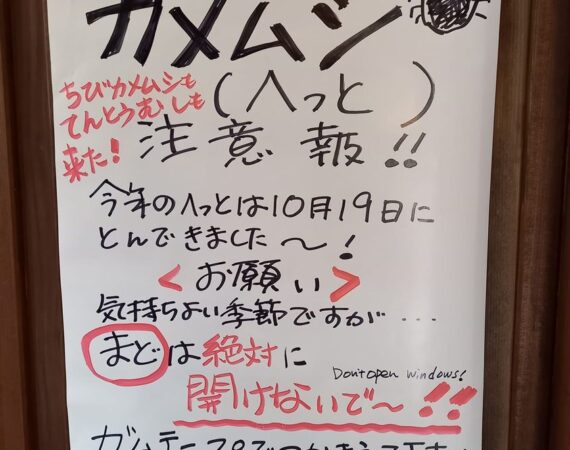 カメムシ
(へっと)
ちびカメムシも
てんとうむしも
来た!
注意報!!
今年のへっとは10月19日に
とんできました〜!
<お願い>
気持ちよい季節ですが...
まどは絶対に
Don't open windows!
開けないで〜!!
ガムテープで